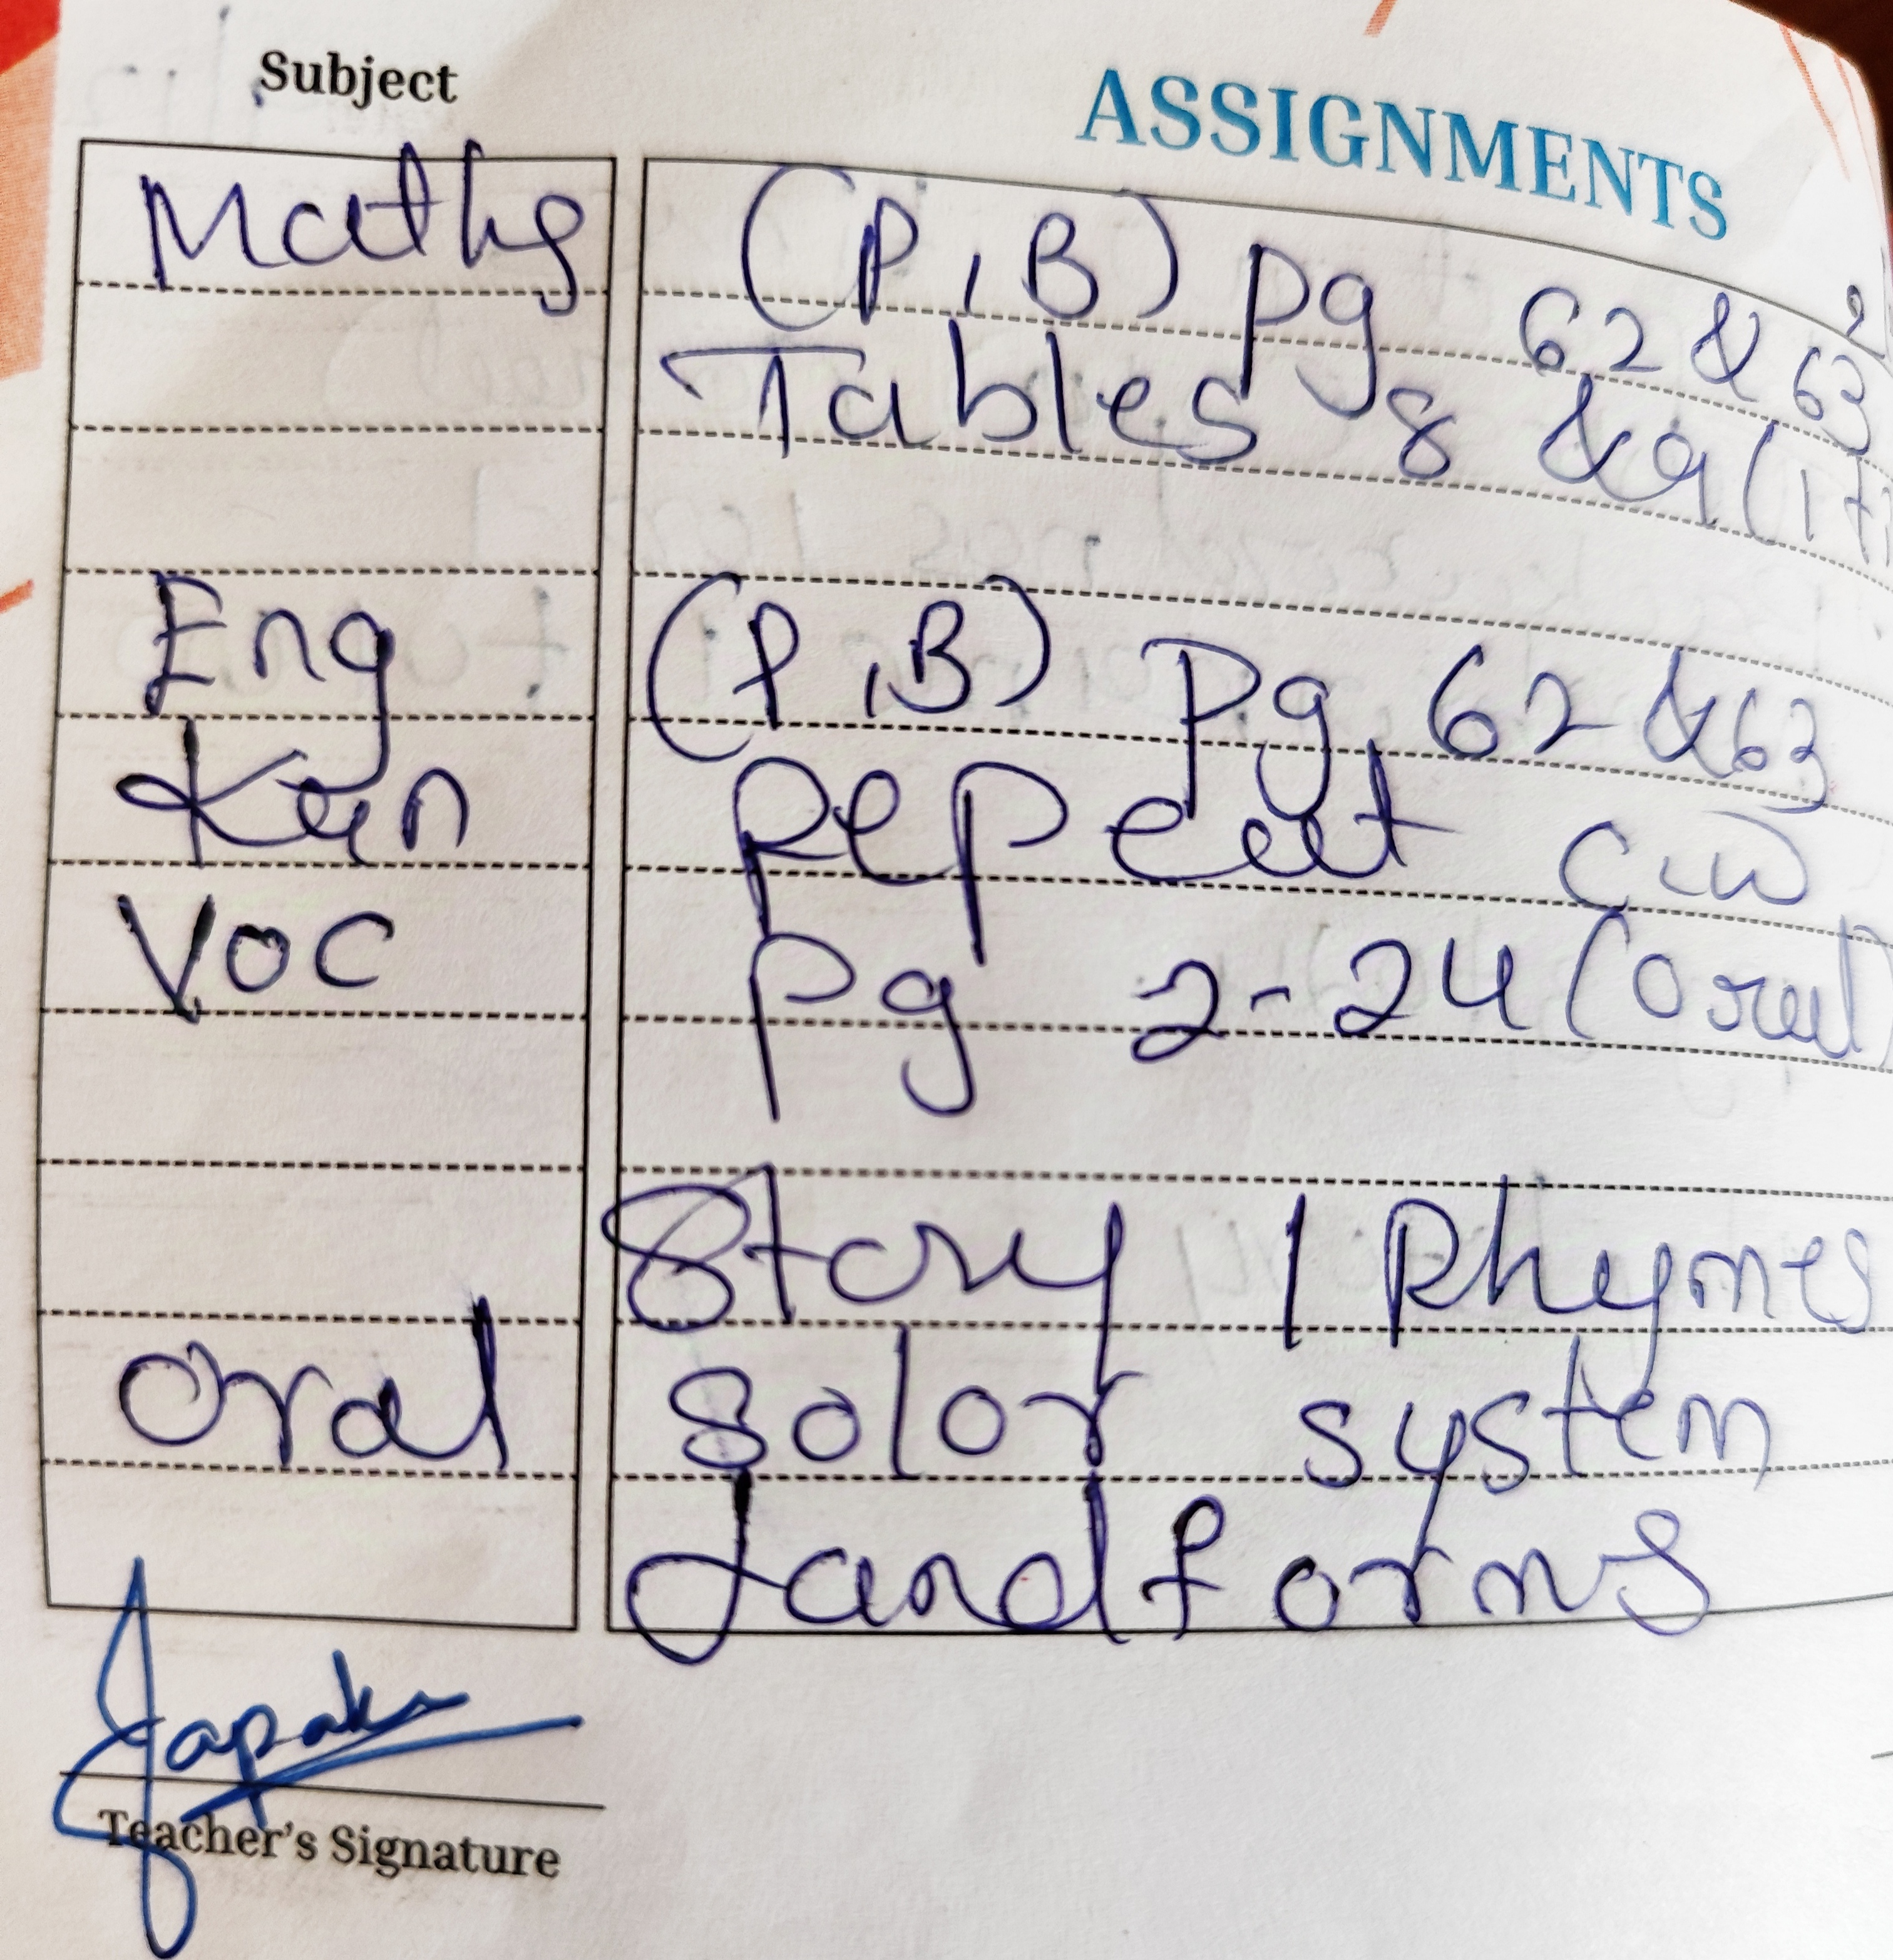 Subject ASSIGNMENTS
Maths (P,B) pg 62 & 63
Tables 8 & 9
Eng (P,B) Pg 62 & 63
Kan Repeat C.W
Voc Pg 2-24 (Oral)
Story / Rhymes
Oral Solor system
Landforms
Teacher's Signature